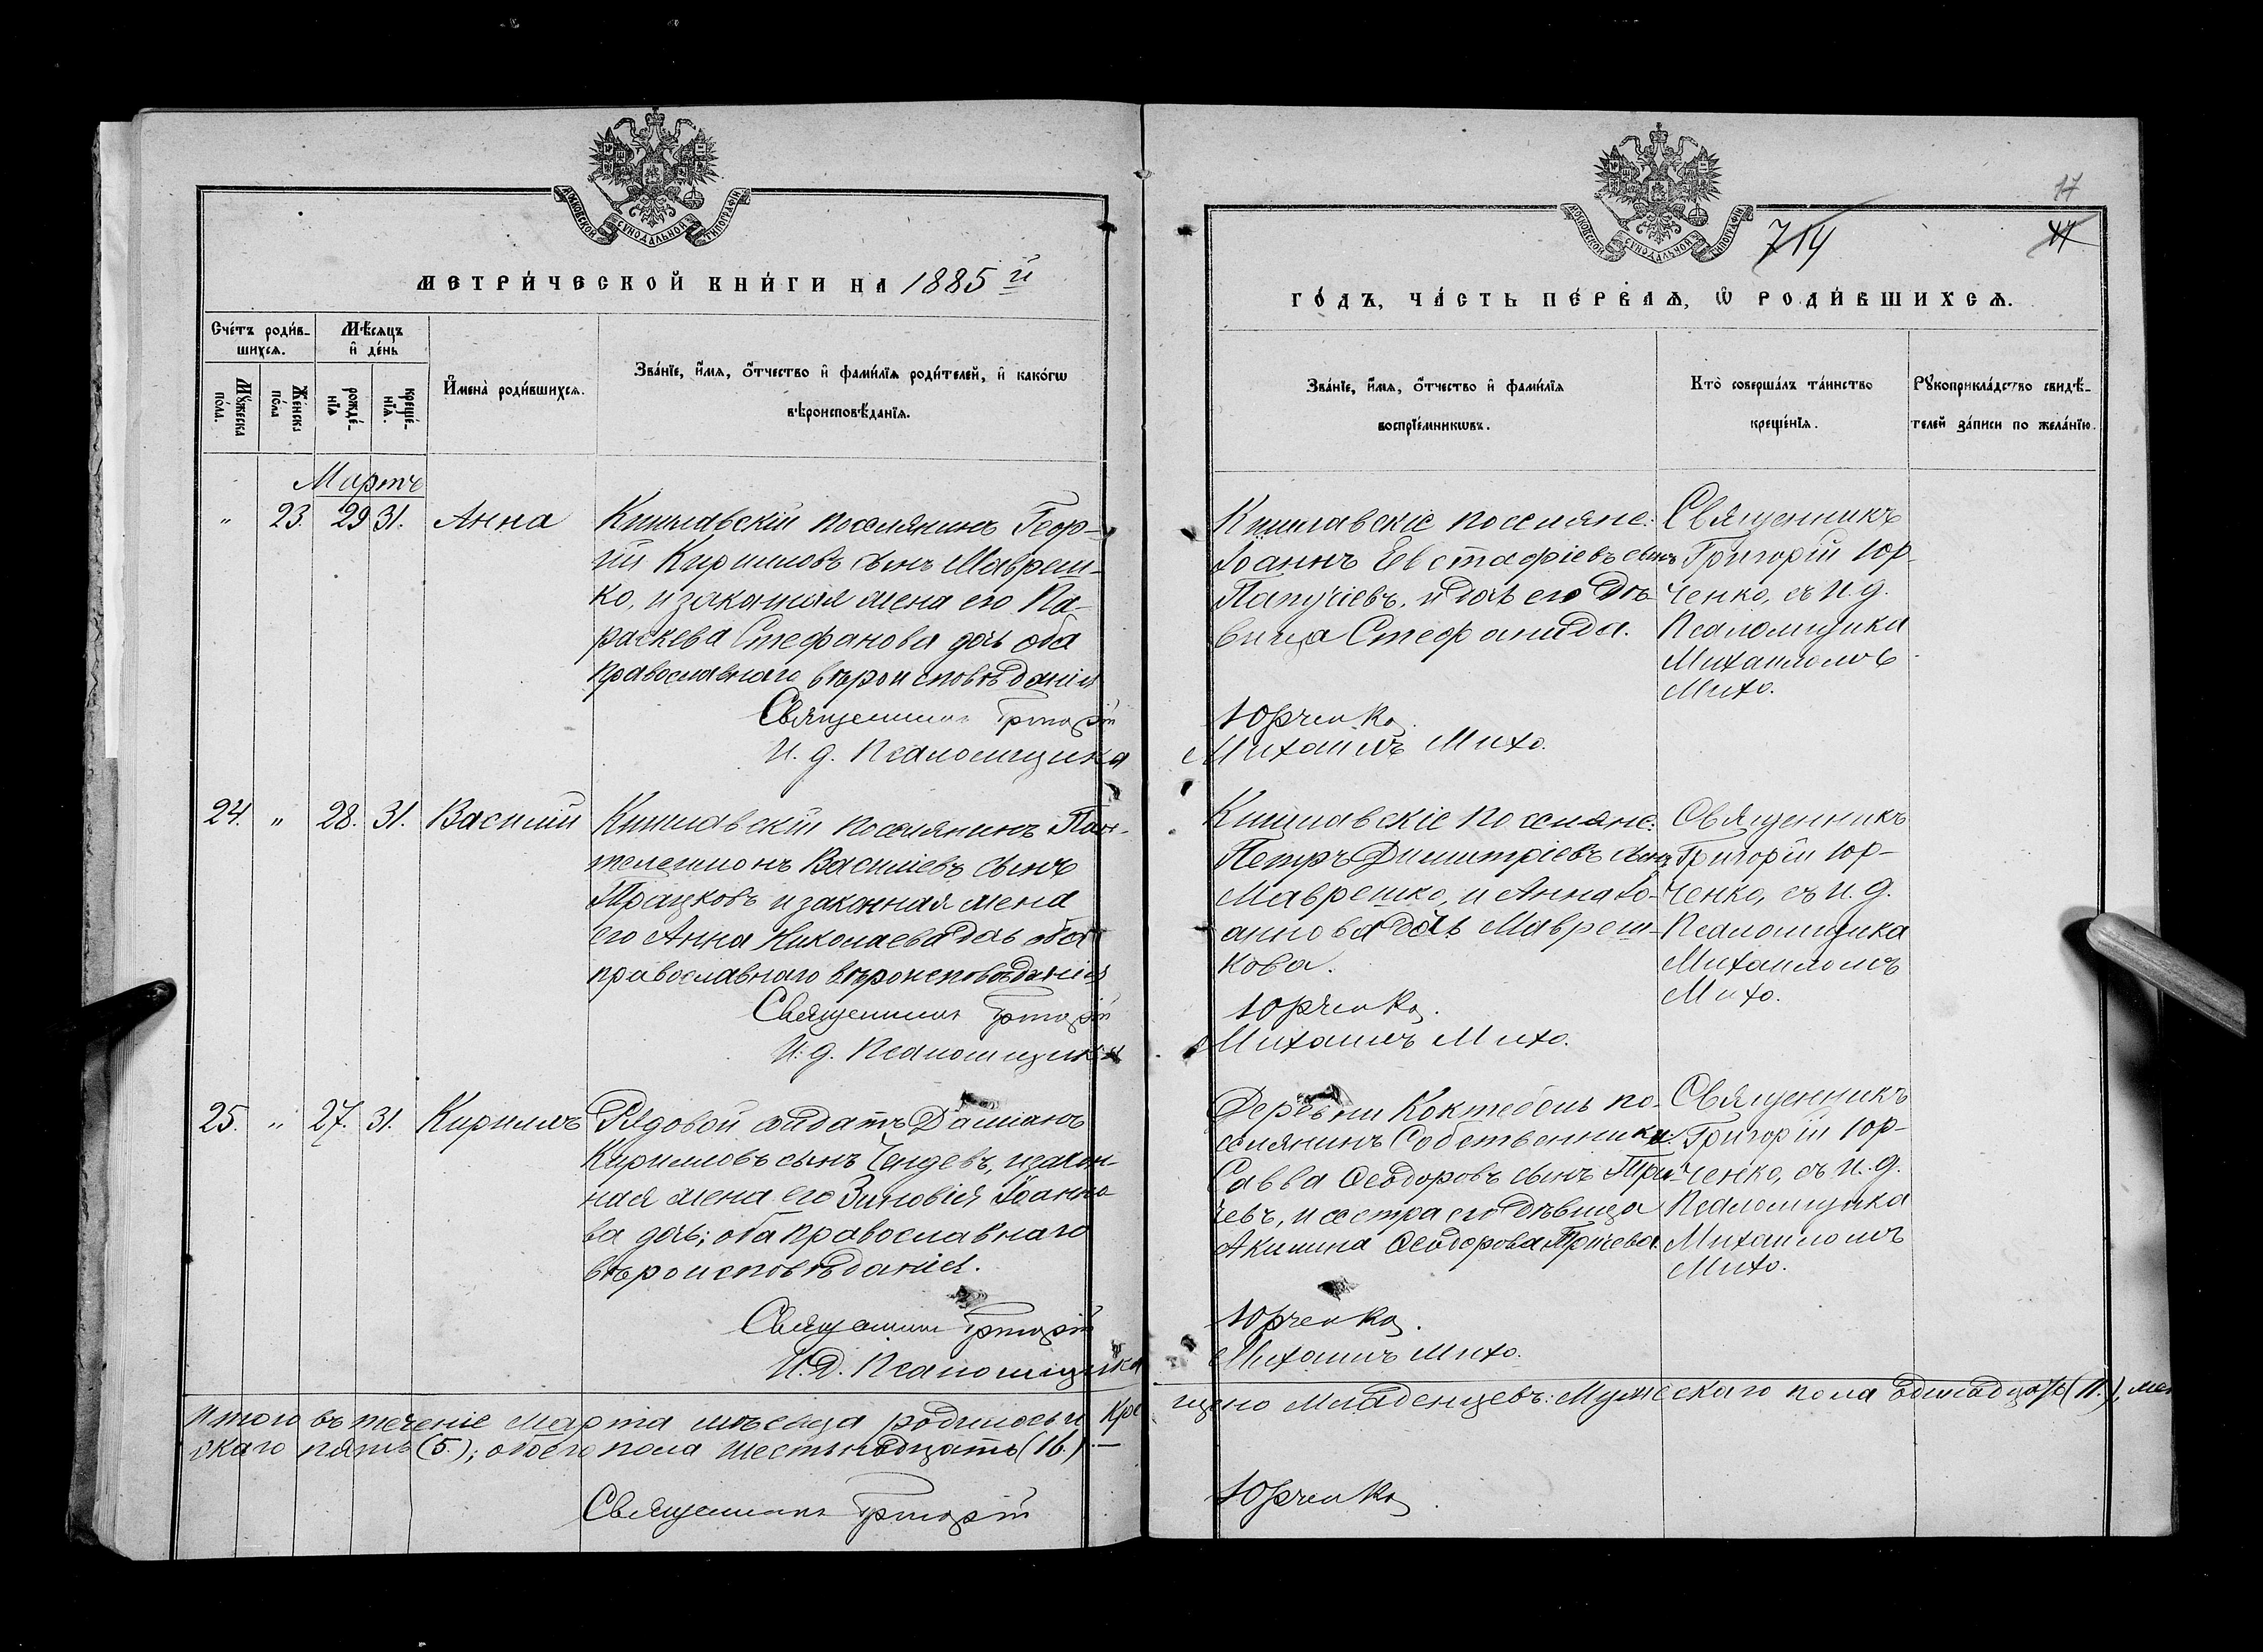 МОСКОВСКОЙ СѴНОДАЛЬНОЙ ТИПОГРАФІИ
МЕТРИ́ЧЕСКОЙ КНИ́ГИ НА 1885й
Сче́тъ роди́в-
шихсѧ.
Мѣ́сѧцъ
и҆ де́нь
Мꙋ́жеска
по́ла.
Же́нска
по́ла
рожде́-
нїѧ
креще́-
нїѧ.
И҆мена̀ роди́вшихсѧ.
Зва́нїе, и҆́мѧ, ѻ҆́тчество и҆ фами́лїѧ роди́телей, и҆ како́гѡ
вѣроисповѣ́данїѧ.
Мартъ
" 23. 29 31. Анна
Кишлавскій поселянинъ Геор-
гій Кирилловъ сынъ Мавреш-
ко, и законная жена его Па-
раскева Стефанова дочь оба
православнаго вѣроисповѣданія
Священникъ Григорій
И. д. Псаломщика
24. " 28. 31. Василій
Кишлавскій поселянинъ Пан-
телеимонъ Василіевъ сынъ
Трацковъ и законная жена
его Анна Николаева дочь оба
православнаго вѣроисповѣданія
Священникъ Григорій
И. д. Псаломщика
25. " 27. 31. Кириллъ
Рядовой солдатъ Даміанъ
Кирилловъ сынъ Чендевъ, и закон-
ная жена его Зиновія Іоанно-
ва дочь; оба православнаго
вѣроисповѣданія.
Священникъ Григорій
И. Д. Псаломщика
Итого въ теченіе Марта мѣсяца родилось и кре
скаго пять (5.); обоего пола шестьнадцать (16.) —
Священникъ Григорій
МОСКОВСКОЙ СѴНОДАЛЬНОЙ ТИПОГРАФІИ
714
17
ГО́ДЪ, ЧА́СТЬ ПЕ́РВАѦ, Ѡ҆ РОДИ́ВШИХСѦ.
Зва́нїе, и҆́мѧ, ѻ҆́тчество и҆ фами́лїѧ
воспрїе́мникѡвъ.
Кто̀ соверша́лъ та́инство
креще́нїѧ.
Рꙋкоприкла́дство свидѣ́-
телей за́писи по жела́нїю.
Кишлавскіе поселяне:
Іоаннъ Евстафіевъ сынъ
Папучіевъ, и дочь его дѣ-
вица Стефанида.
Священникъ
Григорій Юр-
ченко, съ и. д.
Псаломщика
Михаиломъ
Михо.
Юрченко.
Михаилъ Михо.
Кишлавскіе поселяне:
Петръ Димитріевъ сынъ
Маврешко, и Анна Іо-
аннова дочь Мавреш-
кова.
Священникъ
Григорій Юр-
ченко, съ и. д.
Псаломщика
Михаиломъ
Михо.
Юрченко.
Михаилъ Михо.
Деревни Коктебель по-
селянинъ Собственникъ
Савва Ѳеодоровъ сынъ
чевъ, и сестра его дѣвица
Акилина Ѳеодорова
Священникъ
Григорій Юр-
ченко, съ и. д.
Псаломщика
Михаиломъ
Михо.
Юрченко.
Михаилъ Михо.
щено младенцевъ: Мужескаго пола одинадцать (11.), жен
Юрченко.